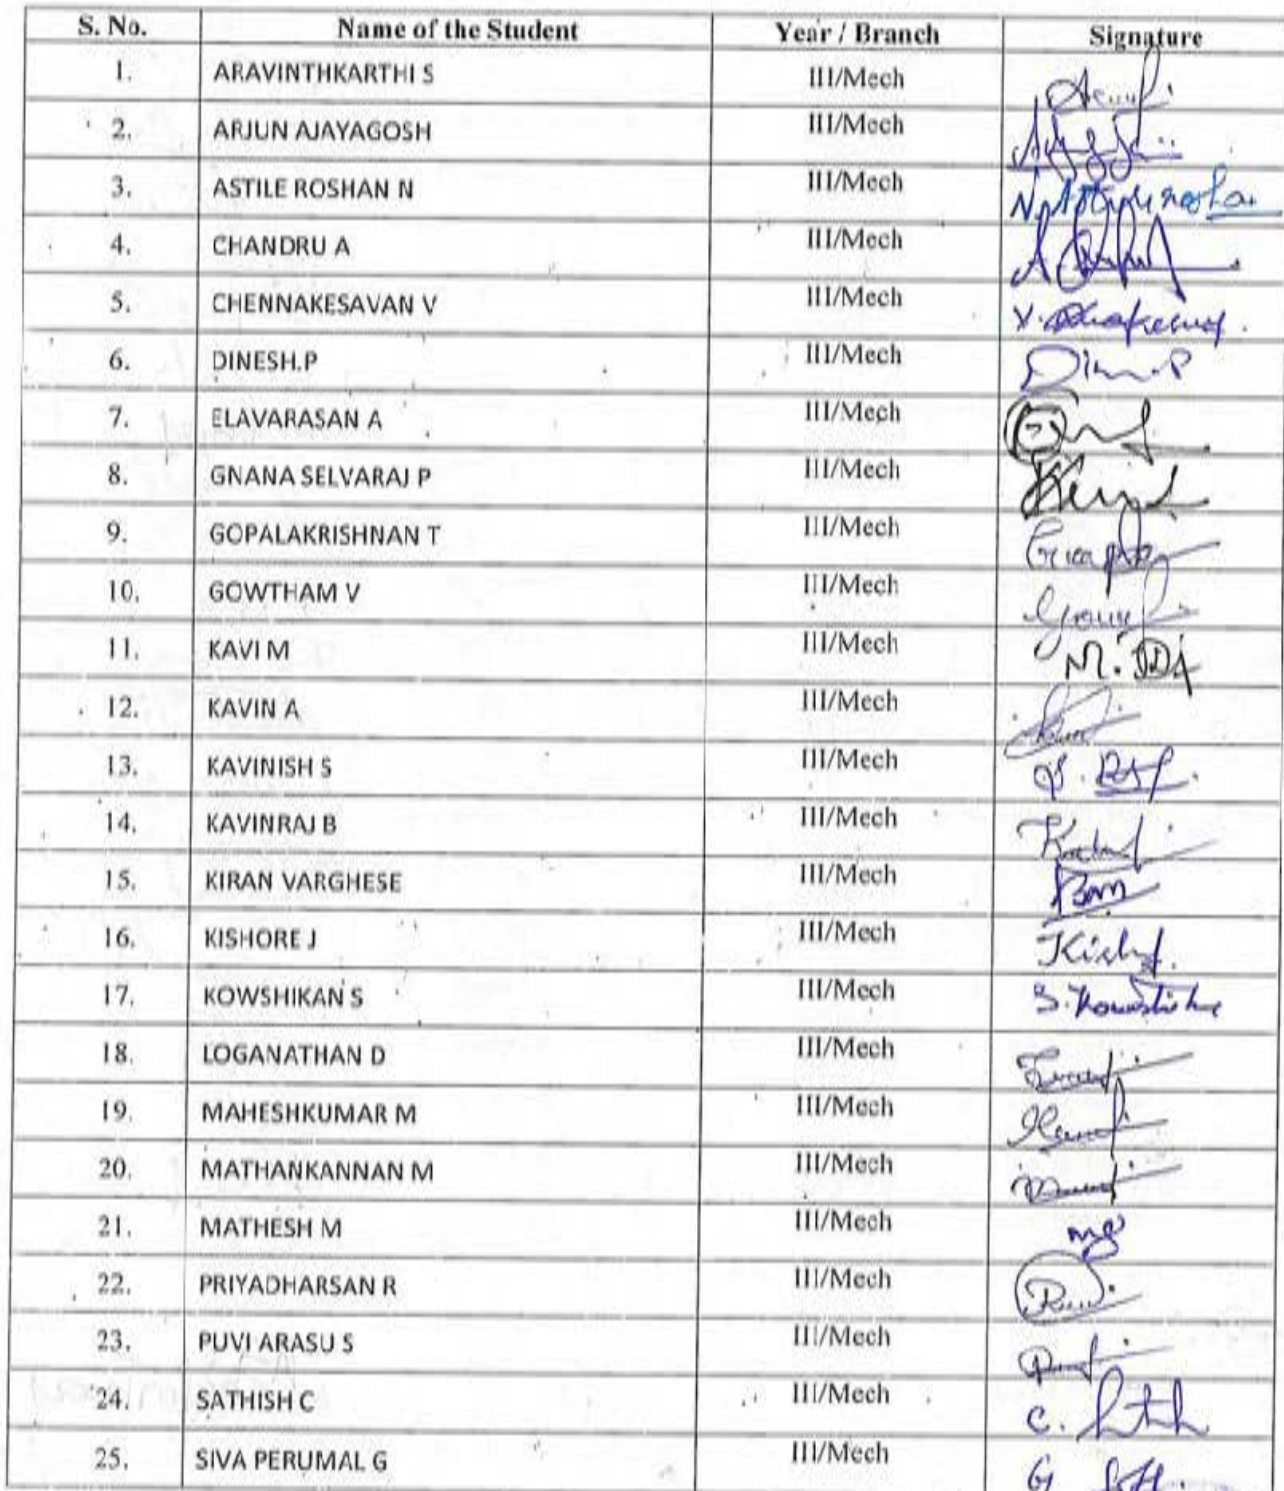 S. No. Name of the Student Year / Branch Signature
1. ARAVINTHKARTHI S III/Mech
2. ARJUN AJAYAGOSH III/Mech
3. ASTILE ROSHAN N III/Mech
4. CHANDRU A III/Mech
5. CHENNAKESAVAN V III/Mech
6. DINESH.P III/Mech
7. ELAVARASAN A III/Mech
8. GNANA SELVARAJ P III/Mech
9. GOPALAKRISHNAN T III/Mech
10. GOWTHAM V III/Mech
11. KAVI M III/Mech
12. KAVIN A III/Mech
13. KAVINISH S III/Mech
14. KAVINRAJ B III/Mech
15. KIRAN VARGHESE III/Mech
16. KISHORE J III/Mech
17. KOWSHIKAN S III/Mech
18. LOGANATHAN D III/Mech
19. MAHESHKUMAR M III/Mech
20. MATHANKANNAN M III/Mech
21. MATHESH M III/Mech
22. PRIYADHARSAN R III/Mech
23. PUVI ARASU S III/Mech
24. SATHISH C III/Mech
25. SIVA PERUMAL G III/Mech